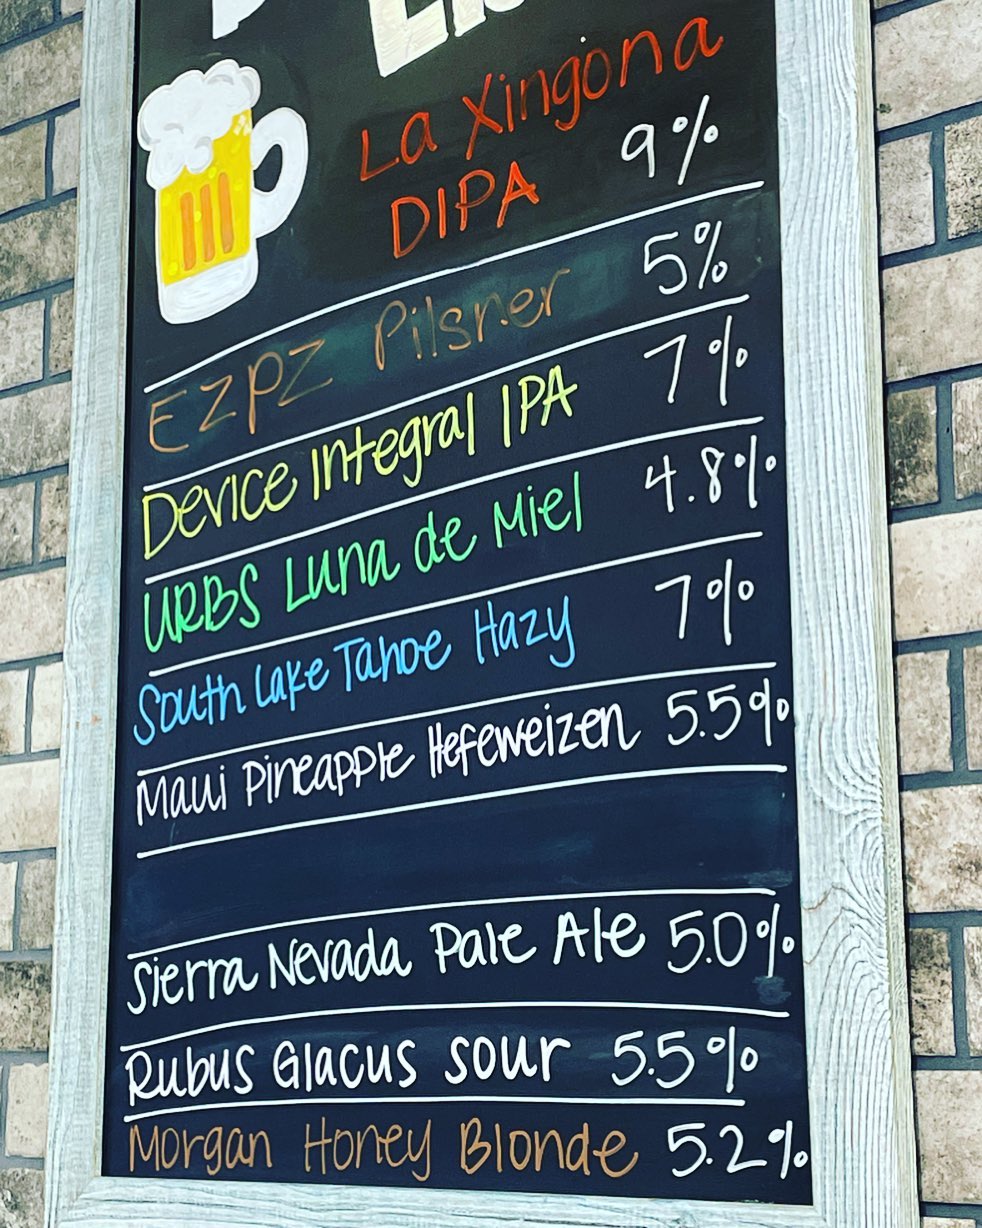 La Xingona
DIPA 9%
EZPZ Pilsner 5%
Device Integral IPA 7%
URBS Luna de Miel 4.8%
South Lake Tahoe Hazy 7%
Maui Pineapple Hefeweizen 5.5%
Sierra Nevada Pale Ale 5.0%
Rubus Glacus sour 5.5%
Morgan Honey Blonde 5.2%